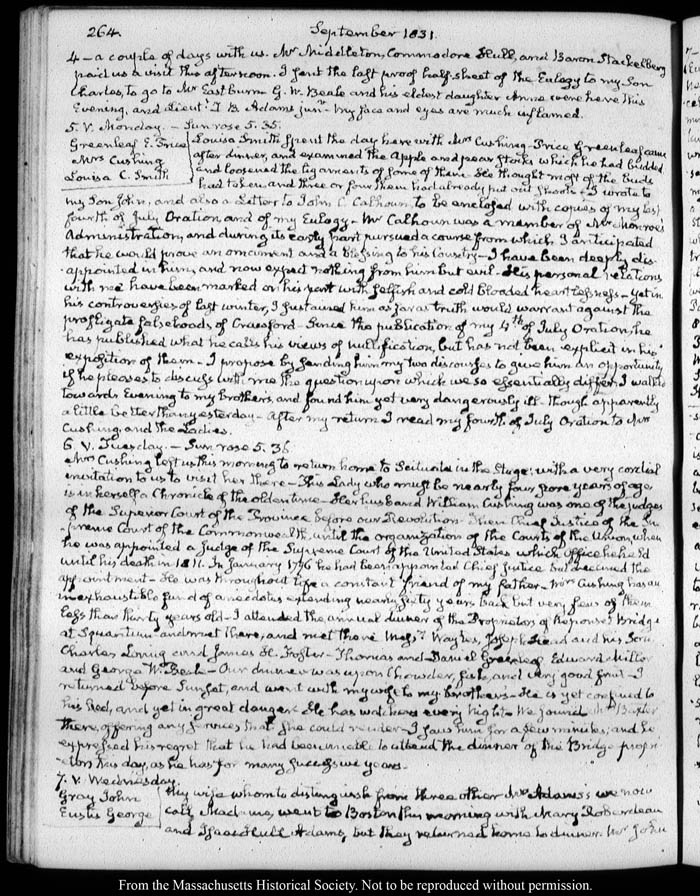 264.
September 1831.
4 — a couple of days with us. Mr Middleton, Commodore Hull, and Baron Stackelberg
paid us a visit this afternoon. I sent the last proof half-sheet of the Eulogy to my Son
Charles, to go to Mr Eastburn. G. W. Beale and his eldest daughter Anne were here this
Evening, and Lieut. T. B Adams junr. My face and eyes are much inflamed.
5. V. Monday. — Sun rose 5. 35.
Greenleaf E. Price
Mrs Cushing
Louisa C. Smith
Louisa Smith spent the day here with Mrs Cushing — Price Greenleaf came
after dinner, and examined the Apple and pear stocks which he had budded
and loosened the ligaments of some of them. He thought most of the buds
had taken, and three or four of them had already put out shoots — I wrote to
my Son John, and also a Letter to John C. Calhoun, to be enclosed with copies of my last
fourth of July Oration, and of my Eulogy — Mr Calhoun was a member of Mr Monroe's
Administration, and during its early part pursued a course from which I anticipated
that he would prove an ornament and a blessing to his Country — I have been deeply dis-
appointed in him, and now expect nothing from him but evil. His personal relations
with me have been marked on his part with selfish and cold blooded heartlessness — yet in
his controversies of last winter, I sustained him as far as truth would warrant against the
profligate falsehoods of Crawford — Since the publication of my 4th of July Oration, he
has published what he calls his views of nullification, but has not been explicit in his
exposition of them — I propose by sending him my two discourses to give him an opportunity
if he pleases to discuss with me the question upon which we so essentially differ. I walked
towards Evening to my brothers, and found him yet very dangerously ill — though apparently
a little better than yesterday — After my return I read my fourth of July Oration to Mrs
Cushing, and the Ladies.
6. V. Tuesday. — Sun rose 5. 36
Mrs Cushing left us this morning to return home to Scituate in the Stage; with a very cordial
invitation to us to visit her there — This Lady who must be nearly four score years of age
is in herself a Chronicle of the olden time — Her husband William Cushing was one of the judges
of the Superior Court of the Province before our Revolution — Then Chief Justice of the Su-
-preme Court of the Commonwealth, until the organization of the Courts of the Union, when
he was appointed a Judge of the Supreme Court of the United States which Office he held
until his death in 1810. In January 1796 he had been appointed Chief Justice but declined the
appointment — He was throughout life a constant friend of my father. Mrs Cushing has an
inexhaustible fund of anecdotes extending nearly sixty years back but very few of them
less than thirty years old — I attended the annual dinner of the Proprietors of Neponset Bridge
at Squantum and met there, Messrs
Charles Loring and James H. Foster — Thomas and Daniel Greenleaf Edward Miller
and George W. Beale — Our dinner was upon Chowder, fish, and very good fruit — I
returned before Sunset, and went with my wife to my brothers — He is yet confined to
his bed, and yet in great danger. He has watchers every night — We found Mrs Baxter
there, offering any services that she could render — I saw him for a few minutes; and he
expressed his regret that he had been unable to attend the dinner of the Bridge propri-
-etors this day, as he has for many successive years.
7. V. Wednesday.
Gray John
Eustis George
My wife whom to distinguish from three other Mrs Adams's, we now
call Madame, went to Boston this morning with Mary Roberdeau
and Isaac Hull Adams, but they returned home to dinner. Mr John
From the Massachusetts Historical Society. Not to be reproduced without permission.